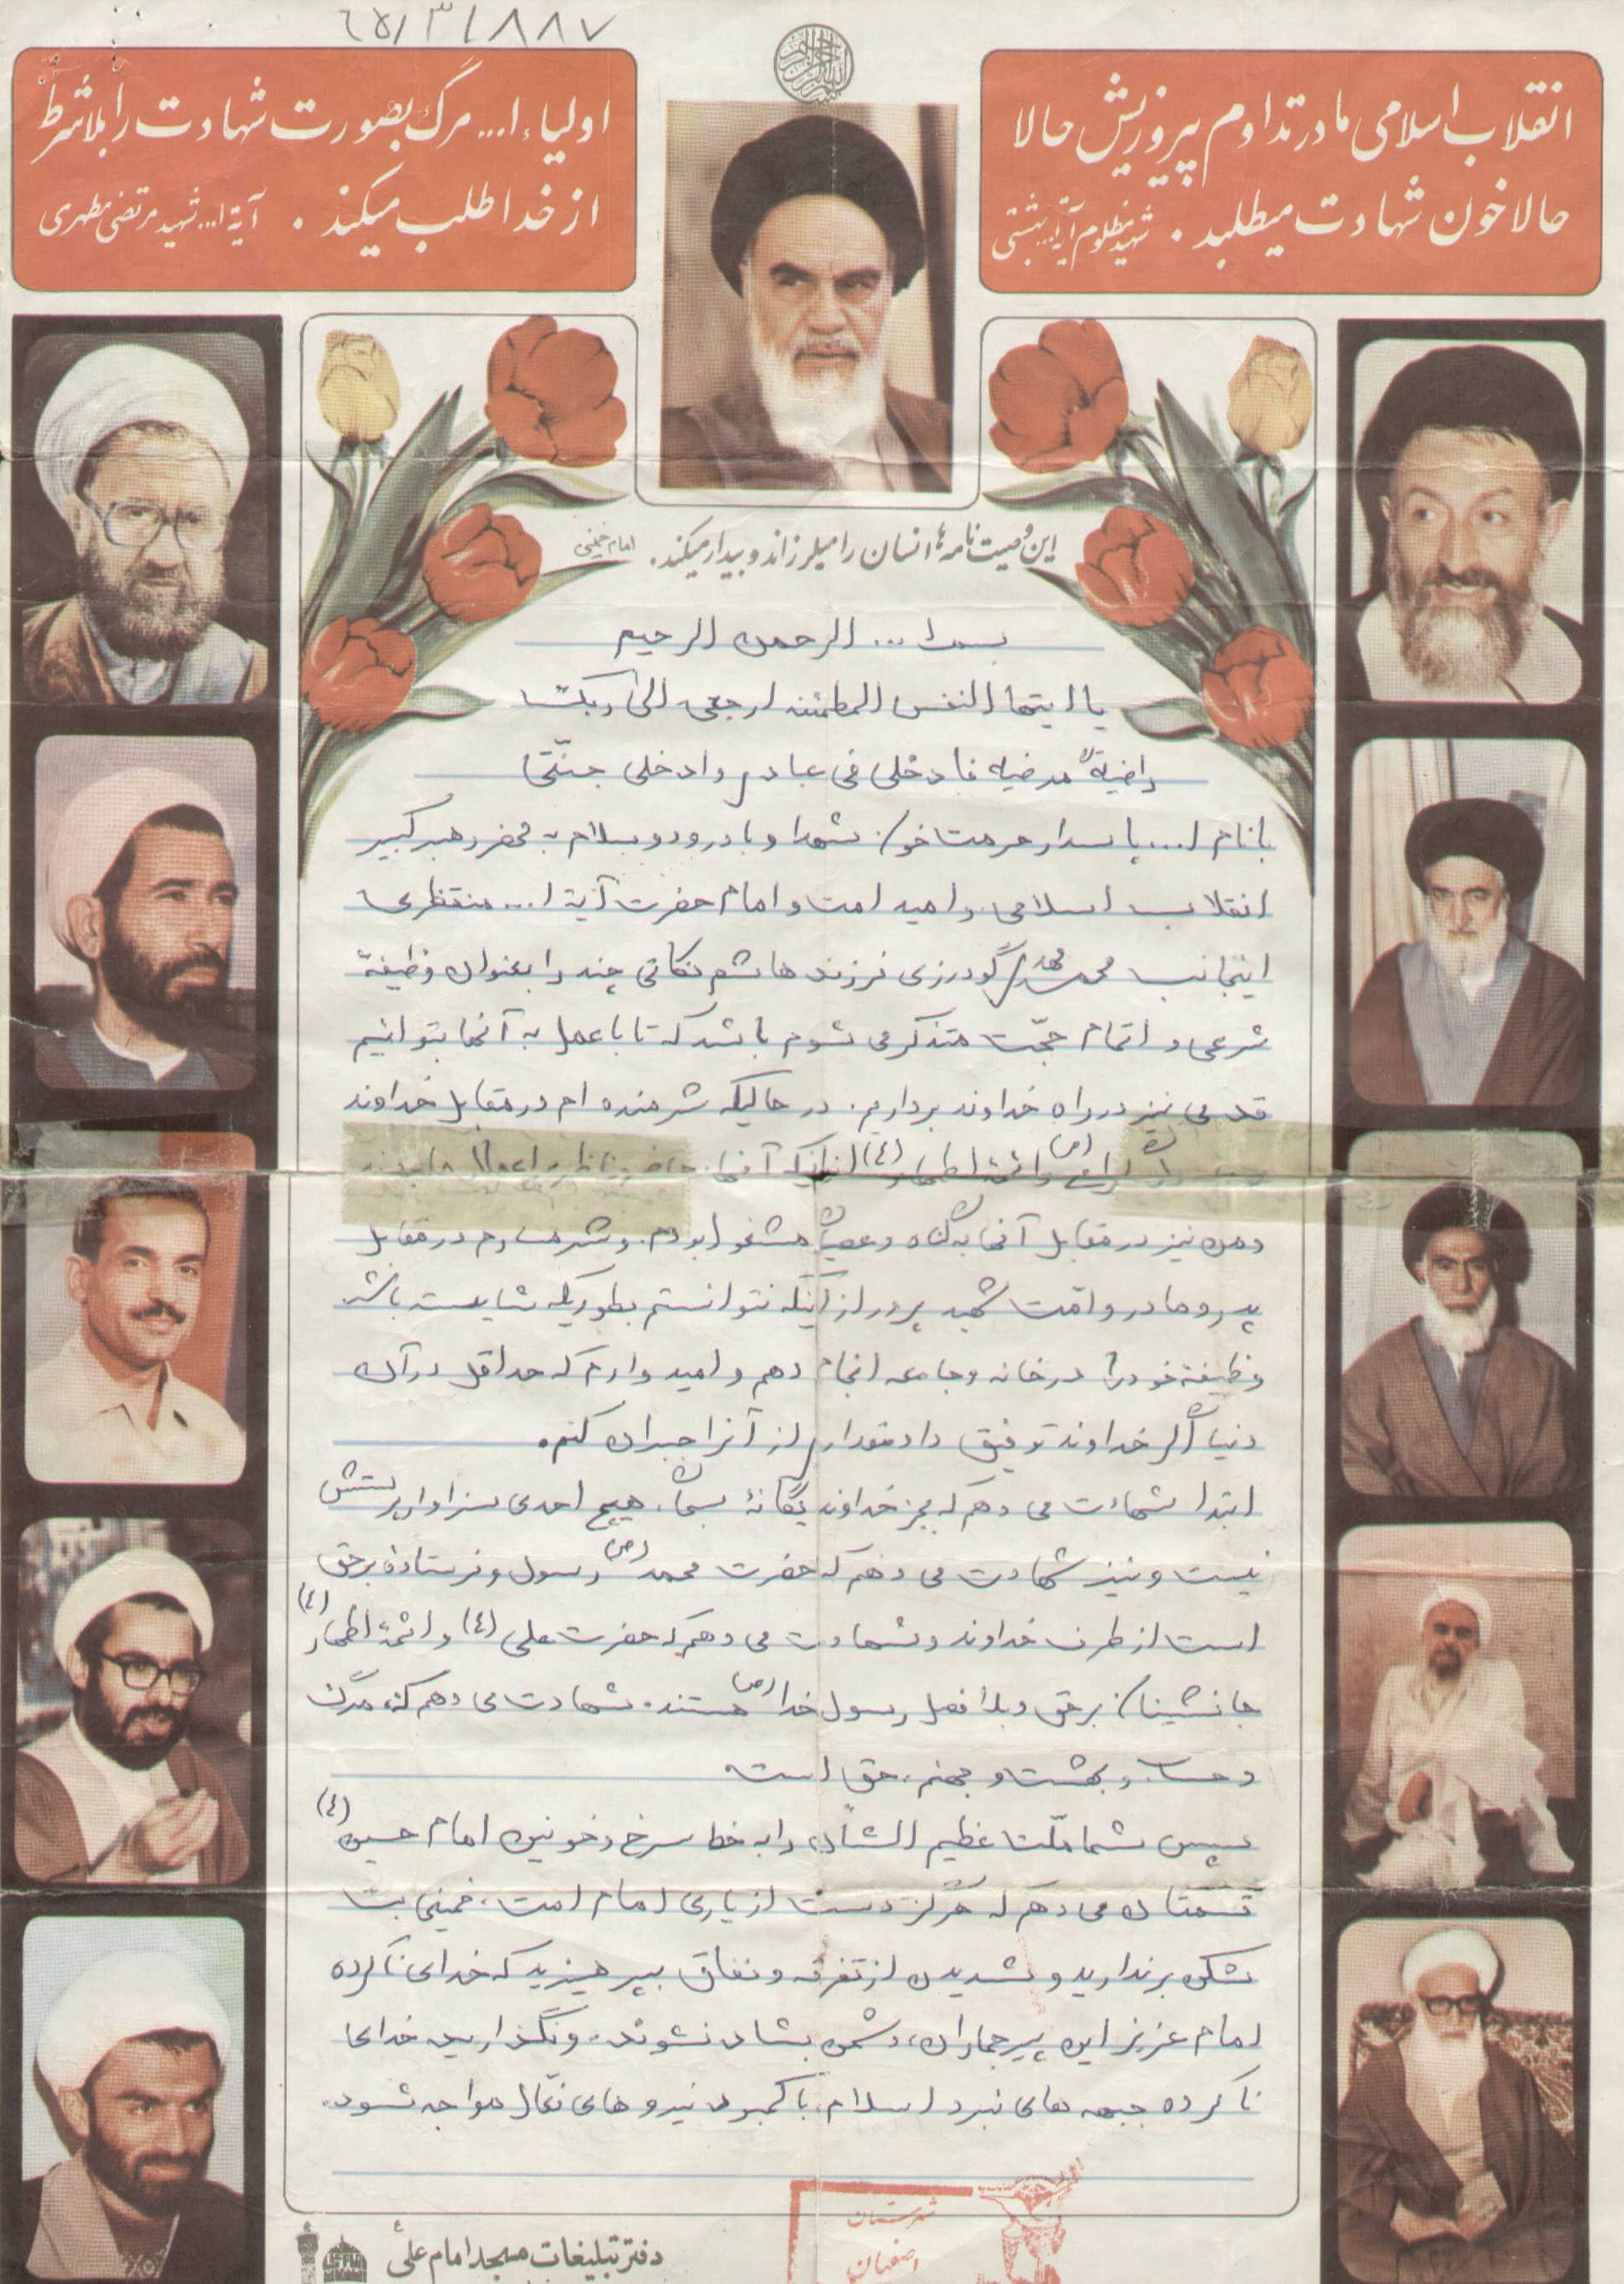 ۶۵/۳/۸۸۷
انقلاب اسلامی ما در تداوم پیروزیش حالا
حالا خون شهادت میطلبد. شهید مظلوم آیة... بهشتی
اولیاء ا... مرگ بصورت شهادت را بلاشرط
از خدا طلب میکند. آیة ا... شهید مرتضی مطهری
این وصیت نامه ها انسان را میلرزاند و بیدار میکند. امام خمینی
بسم ا... الرحمن الرحیم
یا ایتها النفس المطمئنه ارجعی الی ربک
راضیة مرضیه فادخلی فی عبادی وادخلی جنتی
با نام ا... پاسدار حرمت خون شهدا و با درود و سلام به محضر رهبر کبیر
انقلاب اسلامی و امید امت و امام حضرت آیة ا... منتظری
اینجانب محمد مهدی گودرزی فرزند هاشم نکاتی چند را بعنوان وظیفهٔ
شرعی و اتمام حجّت متذکر می شوم باشد که تا با عمل به آنها بتوانیم
قدمی نیز در راه خداوند برداریم. در حالیکه شرمنده ام در مقابل خداوند
(ص) و ائمهٔ اطهار (ع) از اینکه آنها حاضر و ناظر بر اعمال ما بودند
و من نیز در مقابل آنها به گناه و عصیان مشغول بودم. و شرمسارم در مقابل
پدر و مادر و امّت شهید پرور از اینکه نتوانستم بطوریکه شایسته باشد
وظیفهٔ خود را در خانه و جامعه انجام دهم و امیدوارم که حداقل در آن
دنیا اگر خداوند توفیق داد مقداری از آنرا جبران کنم.
ابتدا شهادت می دهم که بجز خداوند یگانهٔ سبحان، هیچ احدی سزاوار پرستش
نیست و نیز شهادت می دهم که حضرت محمد (ص) رسول و فرستادهٔ برحق
است از طرف خداوند و شهادت می دهم که حضرت علی (ع) و ائمهٔ اطهار (ع)
جانشینان برحق و بلافصل رسول خدا (ص) هستند. شهادت می دهم که مرگ
و حساب و بهشت و جهنم، حق است.
سپس شما ملّت عظیم الشأن را به خط سرخ و خونین امام حسین (ع)
قسمتان می دهم که هرگز دست از یاری امام امت، خمینی بت
شکن برندارید و شدیدن از تفرقه و نفاق بپرهیزید که خدای ناکرده
امام عزیز این پیر جماران، دشمن بشاد نشوند. و نگذارید خدای
ناکرده جبهه های نبرد اسلام، با کمبود نیروهای فعّال مواجه شود.
شهرستان
اصفهان
دفتر تبلیغات مسجد امام علی ع